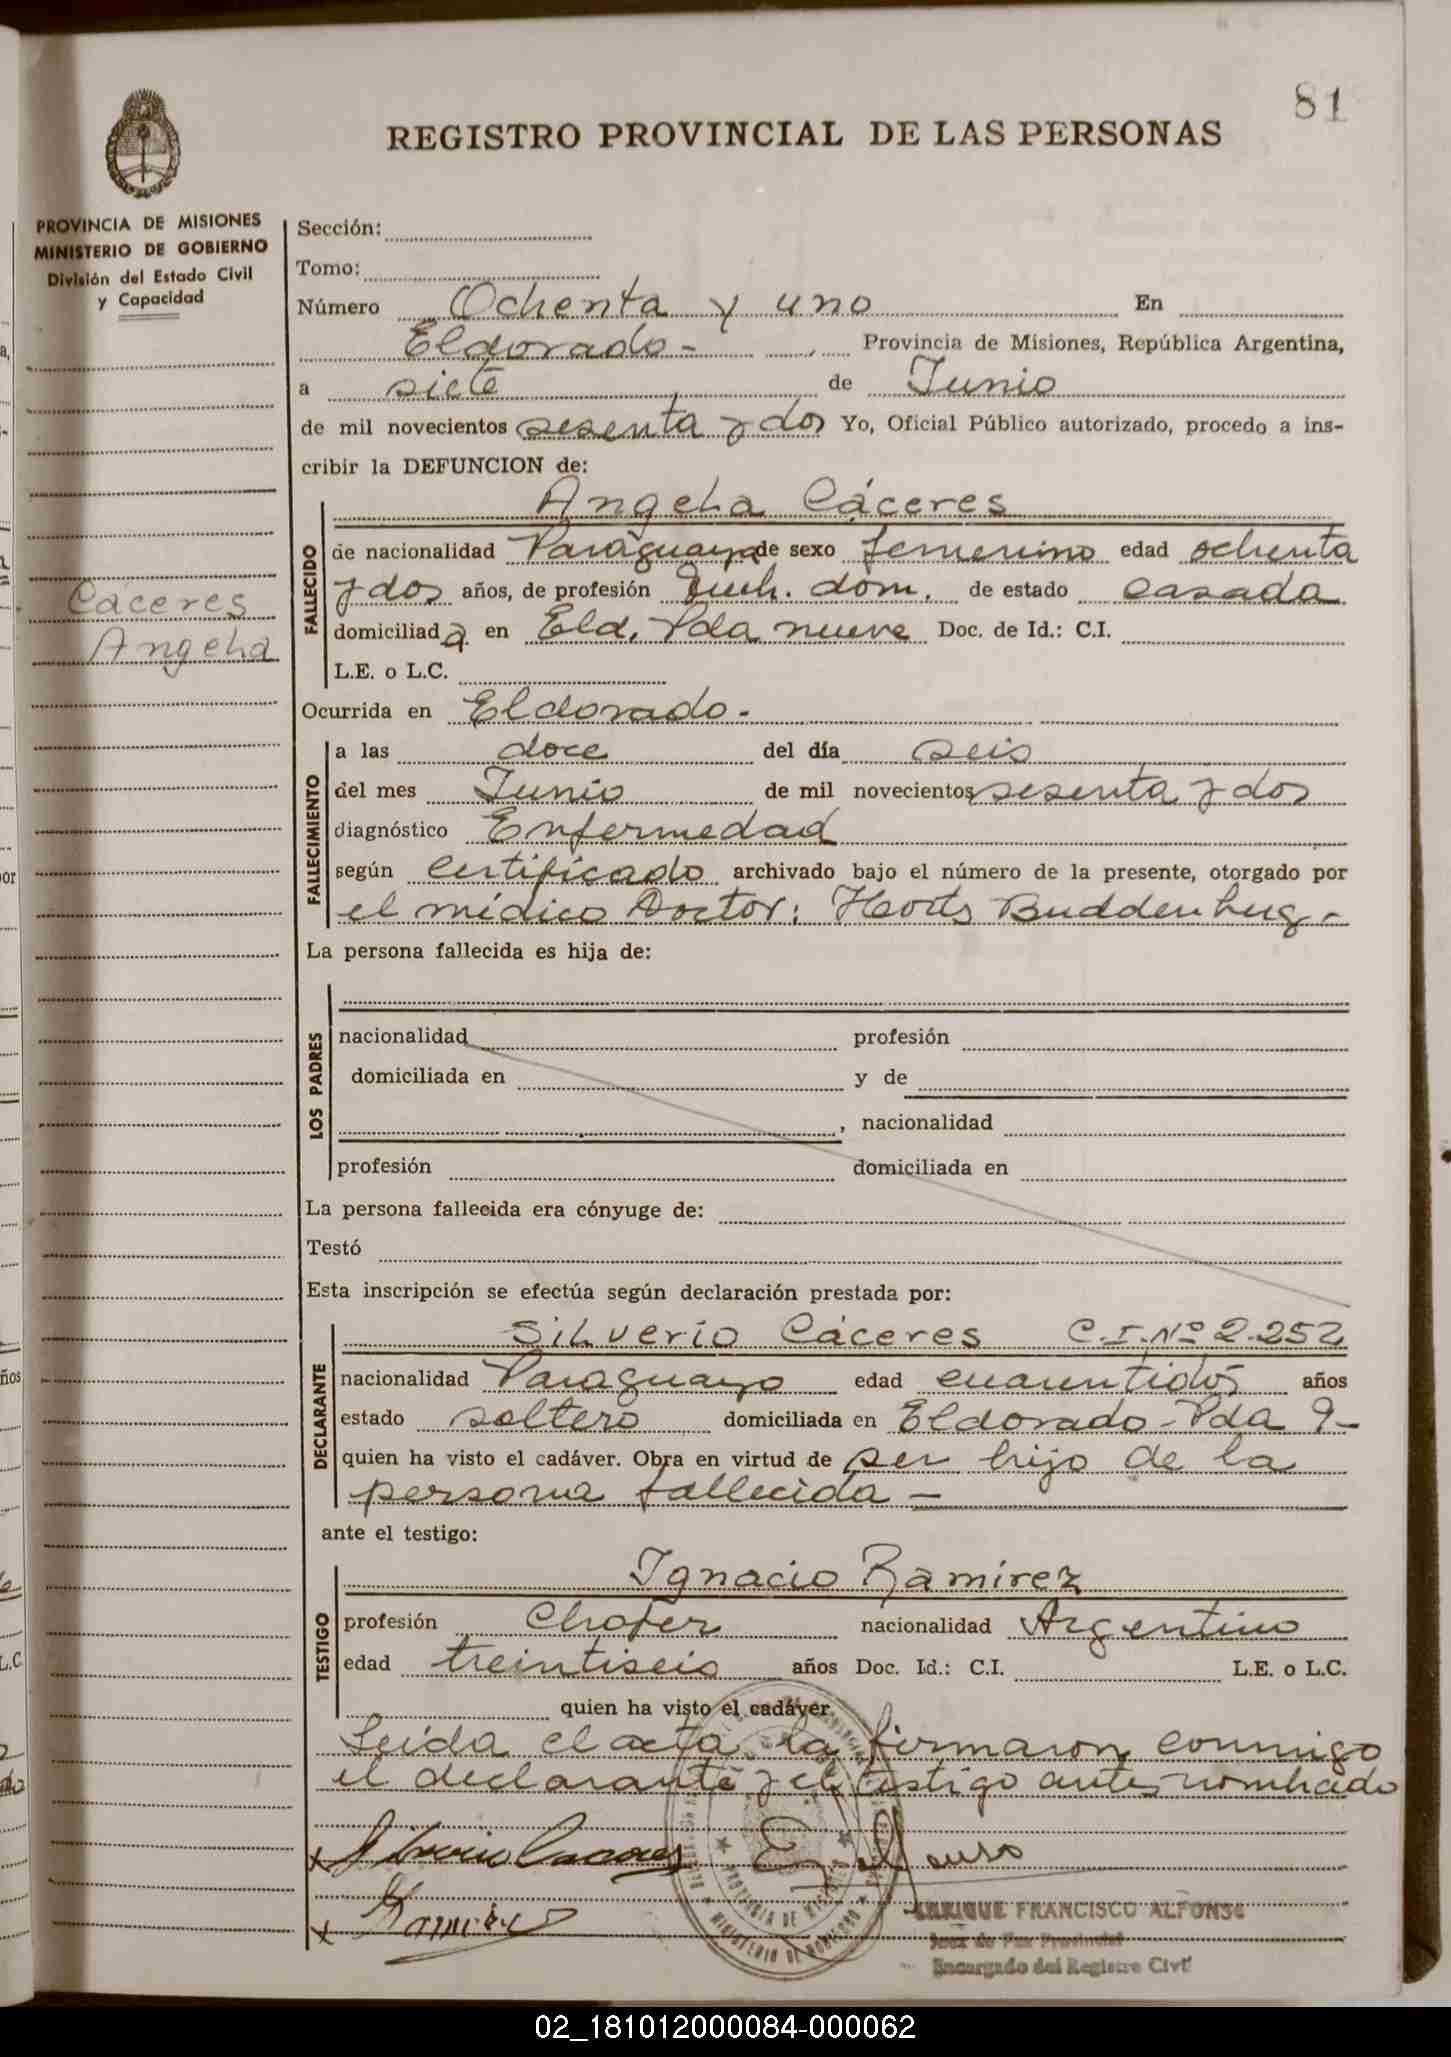 81
REGISTRO PROVINCIAL DE LAS PERSONAS
PROVINCIA DE MISIONES
MINISTERIO DE GOBIERNO
División del Estado Civil
y Capacidad
Cáceres
Angela
Sección:
Tomo:
Número Ochenta y uno En
Eldorado - , Provincia de Misiones, República Argentina,
a siete de Junio
de mil novecientos sesenta y dos Yo, Oficial Público autorizado, procedo a ins-
cribir la DEFUNCION de:
FALLECIDO
Angela Cáceres
de nacionalidad Paraguaya de sexo femenino edad ochenta
y dos años, de profesión Queh. dom. de estado casada
domiciliada en Eld. Pda nueve Doc. de Id.: C.I.
L.E. o L.C.
Ocurrida en Eldorado.-
FALLECIMIENTO
a las doce del día seis
del mes Junio de mil novecientos sesenta y dos
diagnóstico Enfermedad
según certificado archivado bajo el número de la presente, otorgado por
el médico Doctor: Horts Buddenberg.-
La persona fallecida es hija de:
LOS PADRES
nacionalidad profesión
domiciliada en y de
, nacionalidad
profesión domiciliada en
La persona fallecida era cónyuge de:
Testó
Esta inscripción se efectúa según declaración prestada por:
DECLARANTE
Silverio Cáceres C.I. Nº 2.252
nacionalidad Paraguayo edad cuarentidós años
estado soltero domiciliada en Eldorado - Pda 9-
quien ha visto el cadáver. Obra en virtud de ser hijo de la
persona fallecida -
ante el testigo:
TESTIGO
Ignacio Ramirez
profesión Chofer nacionalidad Argentino
edad treintiseis años Doc. Id.: C.I. L.E. o L.C.
quien ha visto el cadáver.
Leída el acta la firmaron conmigo
el declarante y el testigo antes nombrado
x Silverio Caceres
x Ramirez
PROVINCIA DE MISIONES
MINISTERIO DE GOBIERNO
ENRIQUE FRANCISCO ALFONSO
Juez de Paz Provincial
Encargado del Registro Civil
02_181012000084-000062